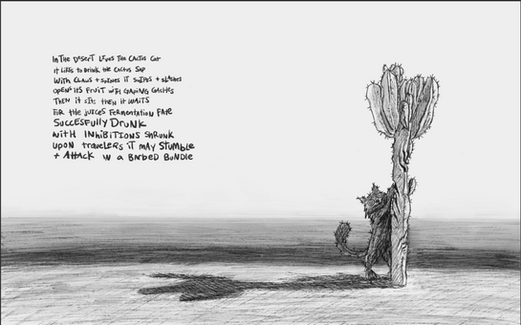 In The Desert Lives The Cactus Cat
it likes to drink the Cactus Sap
With Claws + spines it swipes + slashes
opens its fruit with craving gashes
Then it sits then it waits
For the juices fermentation fate
Succesfully Drunk
with Inhibitions shrunk
upon travelers it may stumble
+ Attack in a barbed bundle